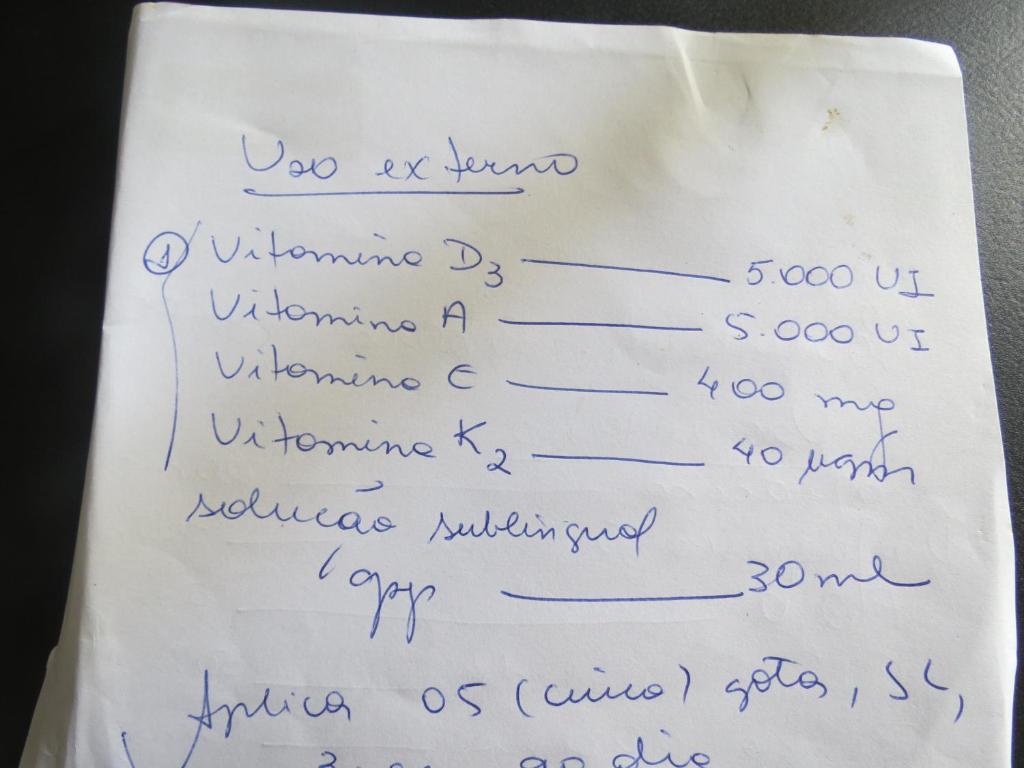 Uso externo
1 Vitamina D3 5.000 UI
Vitamina A 5.000 UI
Vitamina E 400 mg
Vitamina K2 40 µgm
solução sublingual
qsp 30 ml
Aplicar 05 (cinco) gotas, SL,
3 ao dia